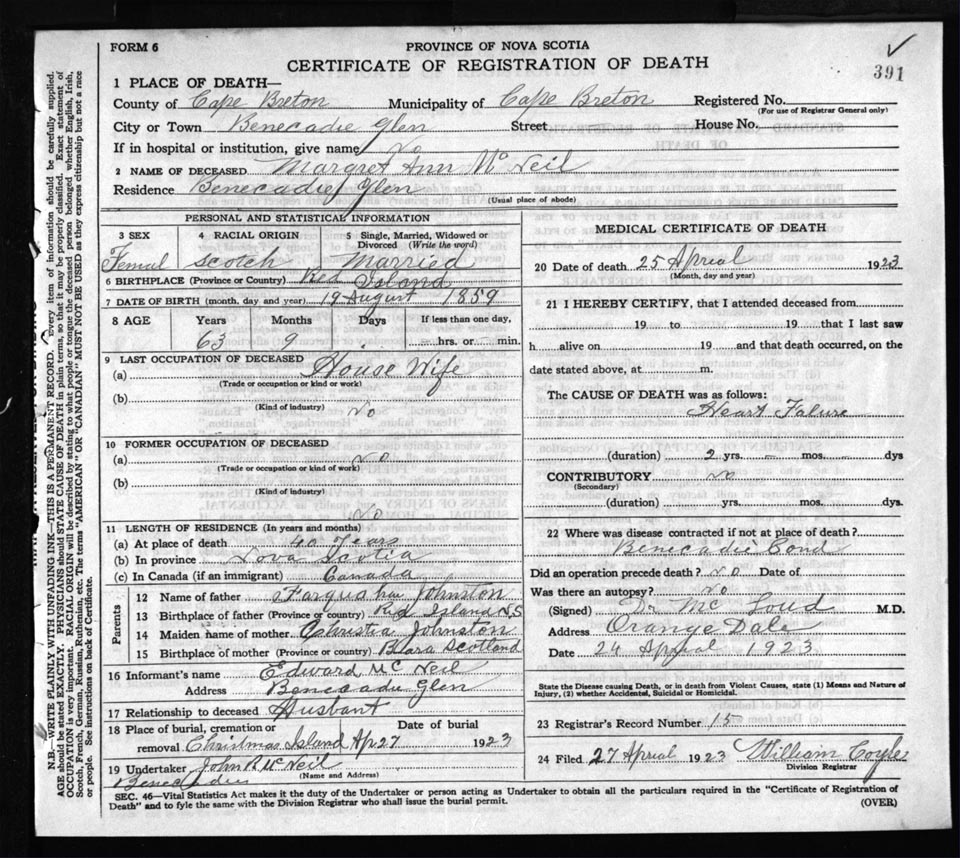 FORM 6
PROVINCE OF NOVA SCOTIA
CERTIFICATE OF REGISTRATION OF DEATH
391
1 PLACE OF DEATH—
County of Cape Breton Municipality of Cape Breton Registered No.
(For use of Registrar General only)
City or Town Benecadie Glen Street House No.
If in hospital or institution, give name No
2 NAME OF DECEASED Margret Ann Mc Neil
Residence Benecadie Glen
(Usual place of abode)
PERSONAL AND STATISTICAL INFORMATION
3 SEX 4 RACIAL ORIGIN 5 Single, Married, Widowed or Divorced (Write the word)
Femal Scotch Married
6 BIRTHPLACE (Province or Country) Red Island
7 DATE OF BIRTH (month, day and year) 19 August 1859
8 AGE Years Months Days If less than one day,
63 9 hrs. or min.
9 LAST OCCUPATION OF DECEASED
(a) House Wife
(Trade or occupation or kind or work)
(b)
(Kind of industry) No
10 FORMER OCCUPATION OF DECEASED
(a) No
(Trade or occupation or kind of work)
(b)
(Kind of industry)
No
11 LENGTH OF RESIDENCE (In years and months)
(a) At place of death 40 Years
(b) In province Nova Scotia
(c) In Canada (if an immigrant) Canada
Parents
12 Name of father Johnston
13 Birthplace of father (Province or country) Red Island N.S
14 Maiden name of mother Christia Johnston
15 Birthplace of mother (Province or country) Bara Scotland
16 Informant's name Edward Mc Neil
Address Benecadie Glen
17 Relationship to deceased Husbant
18 Place of burial, cremation or removal Date of burial
Christmas Island Ap 27 1923
19 Undertaker John R McNeil
(Name and Address)
Benecadie
MEDICAL CERTIFICATE OF DEATH
20 Date of death 25 Aprial 1923
(Month, day and year)
21 I HEREBY CERTIFY, that I attended deceased from
19 to 19 that I last saw
h alive on 19 and that death occurred, on the
date stated above, at m.
The CAUSE OF DEATH was as follows:
Heart Falure
(duration) 2 yrs. mos. dys
CONTRIBUTORY No
(Secondary)
(duration) yrs. mos. dys.
22 Where was disease contracted if not at place of death?
Benecadie
Did an operation precede death? No Date of
Was there an autopsy? No
(Signed) Dr Mc Loud M.D.
Address Orange Dale
Date 24 Aprial 1923
State the Disease causing Death, or in death from Violent Causes, state (1) Means and Nature of
Injury, (2) whether Accidental, Suicidal or Homicidal.
23 Registrar's Record Number 15
24 Filed 27 Aprial 1923 William Coyle
Division Registrar
SEC. 46—Vital Statistics Act makes it the duty of the Undertaker or person acting as Undertaker to obtain all the particulars required in the "Certificate of Registration of
Death" and to fyle the same with the Division Registrar who shall issue the burial permit.
(OVER)
N.B.—WRITE PLAINLY WITH UNFADING INK—THIS IS A PERMANENT RECORD. Every item of information should be carefully supplied.
AGE should be stated EXACTLY. PHYSICIANS should STATE CAUSE OF DEATH in plain terms, so that it may be properly classified. Exact statement of
OCCUPATION is very important. RACIAL ORIGIN will be described by stating to what people or tongue the deceased person belonged whether English, Irish,
Scotch, French, German, Russian, Ruthenian, etc. The terms "AMERICAN" or "CANADIAN" MUST NOT BE USED as they express citizenship but not a race
or people. See instructions on back of Certificate.